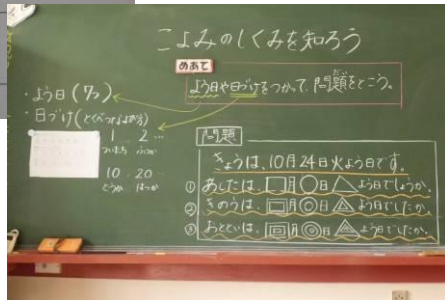 こよみのしくみを知ろう
めあて
よう日や日づけをつかって、問題をとこう。
・よう日(7つ)
・日づけ(とくべつなよみ方)
1 2 …
ついたち ふつか
10 20 …
とうか はつか
問題
きょうは、10月24日火よう日です。
① あしたは、□月○日△よう日でしょうか。
② きのうは、□月◎日△よう日でしたか。
③ おとといは、□月◎日△よう日でしたか。